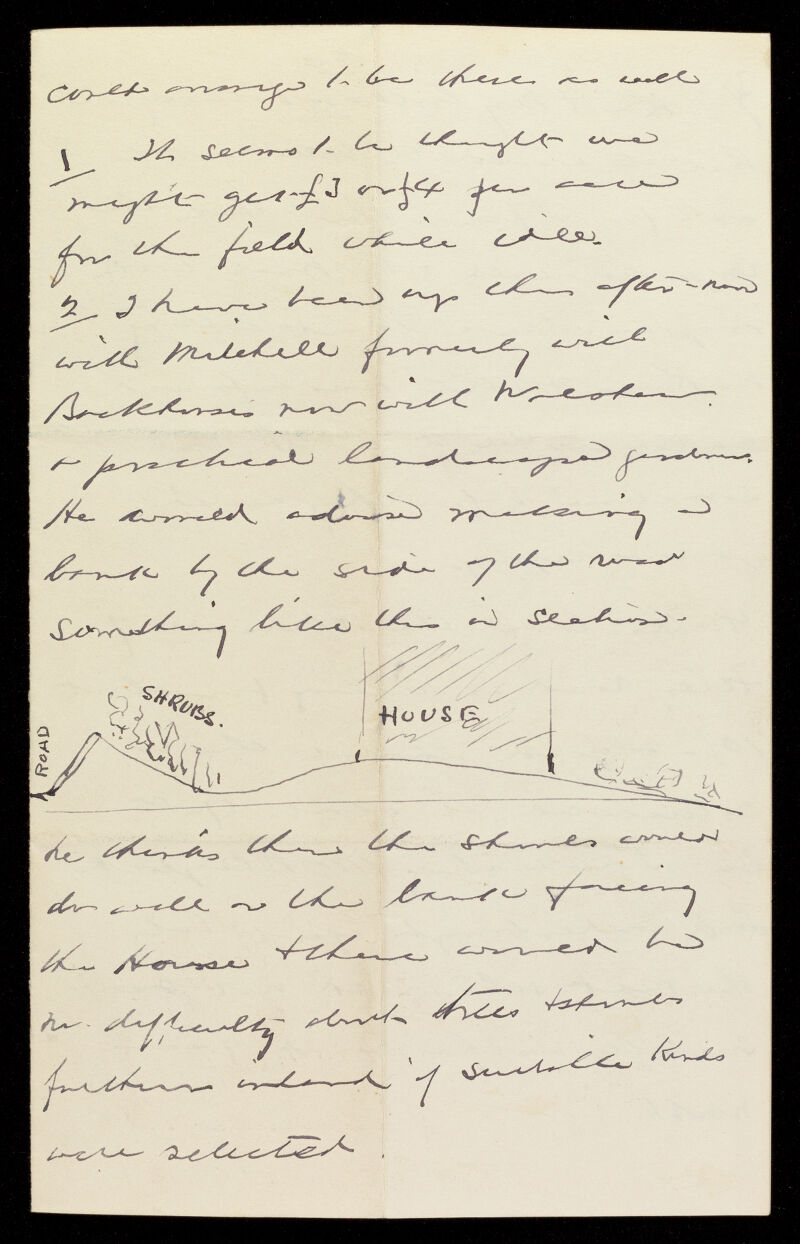 could arrange to be there as well
1 It seems to be thought we
might get £3 or £4 per acre
for the field while idle.
2 I have been up this after-noon
with Mitchell formerly with
Backhouses now with
a practical landscape gardener.
He would advise making a
bank by the side of the road
something like this in section.
SHRUBS.
HOUSE
ROAD
he thinks the shrubs would
do well on the bank facing
the House & there would be
no difficulty about trees & shrubs
further inland if suitable kinds
were selected.